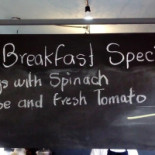 Breakfast
with Spinach
and Fresh Tomato